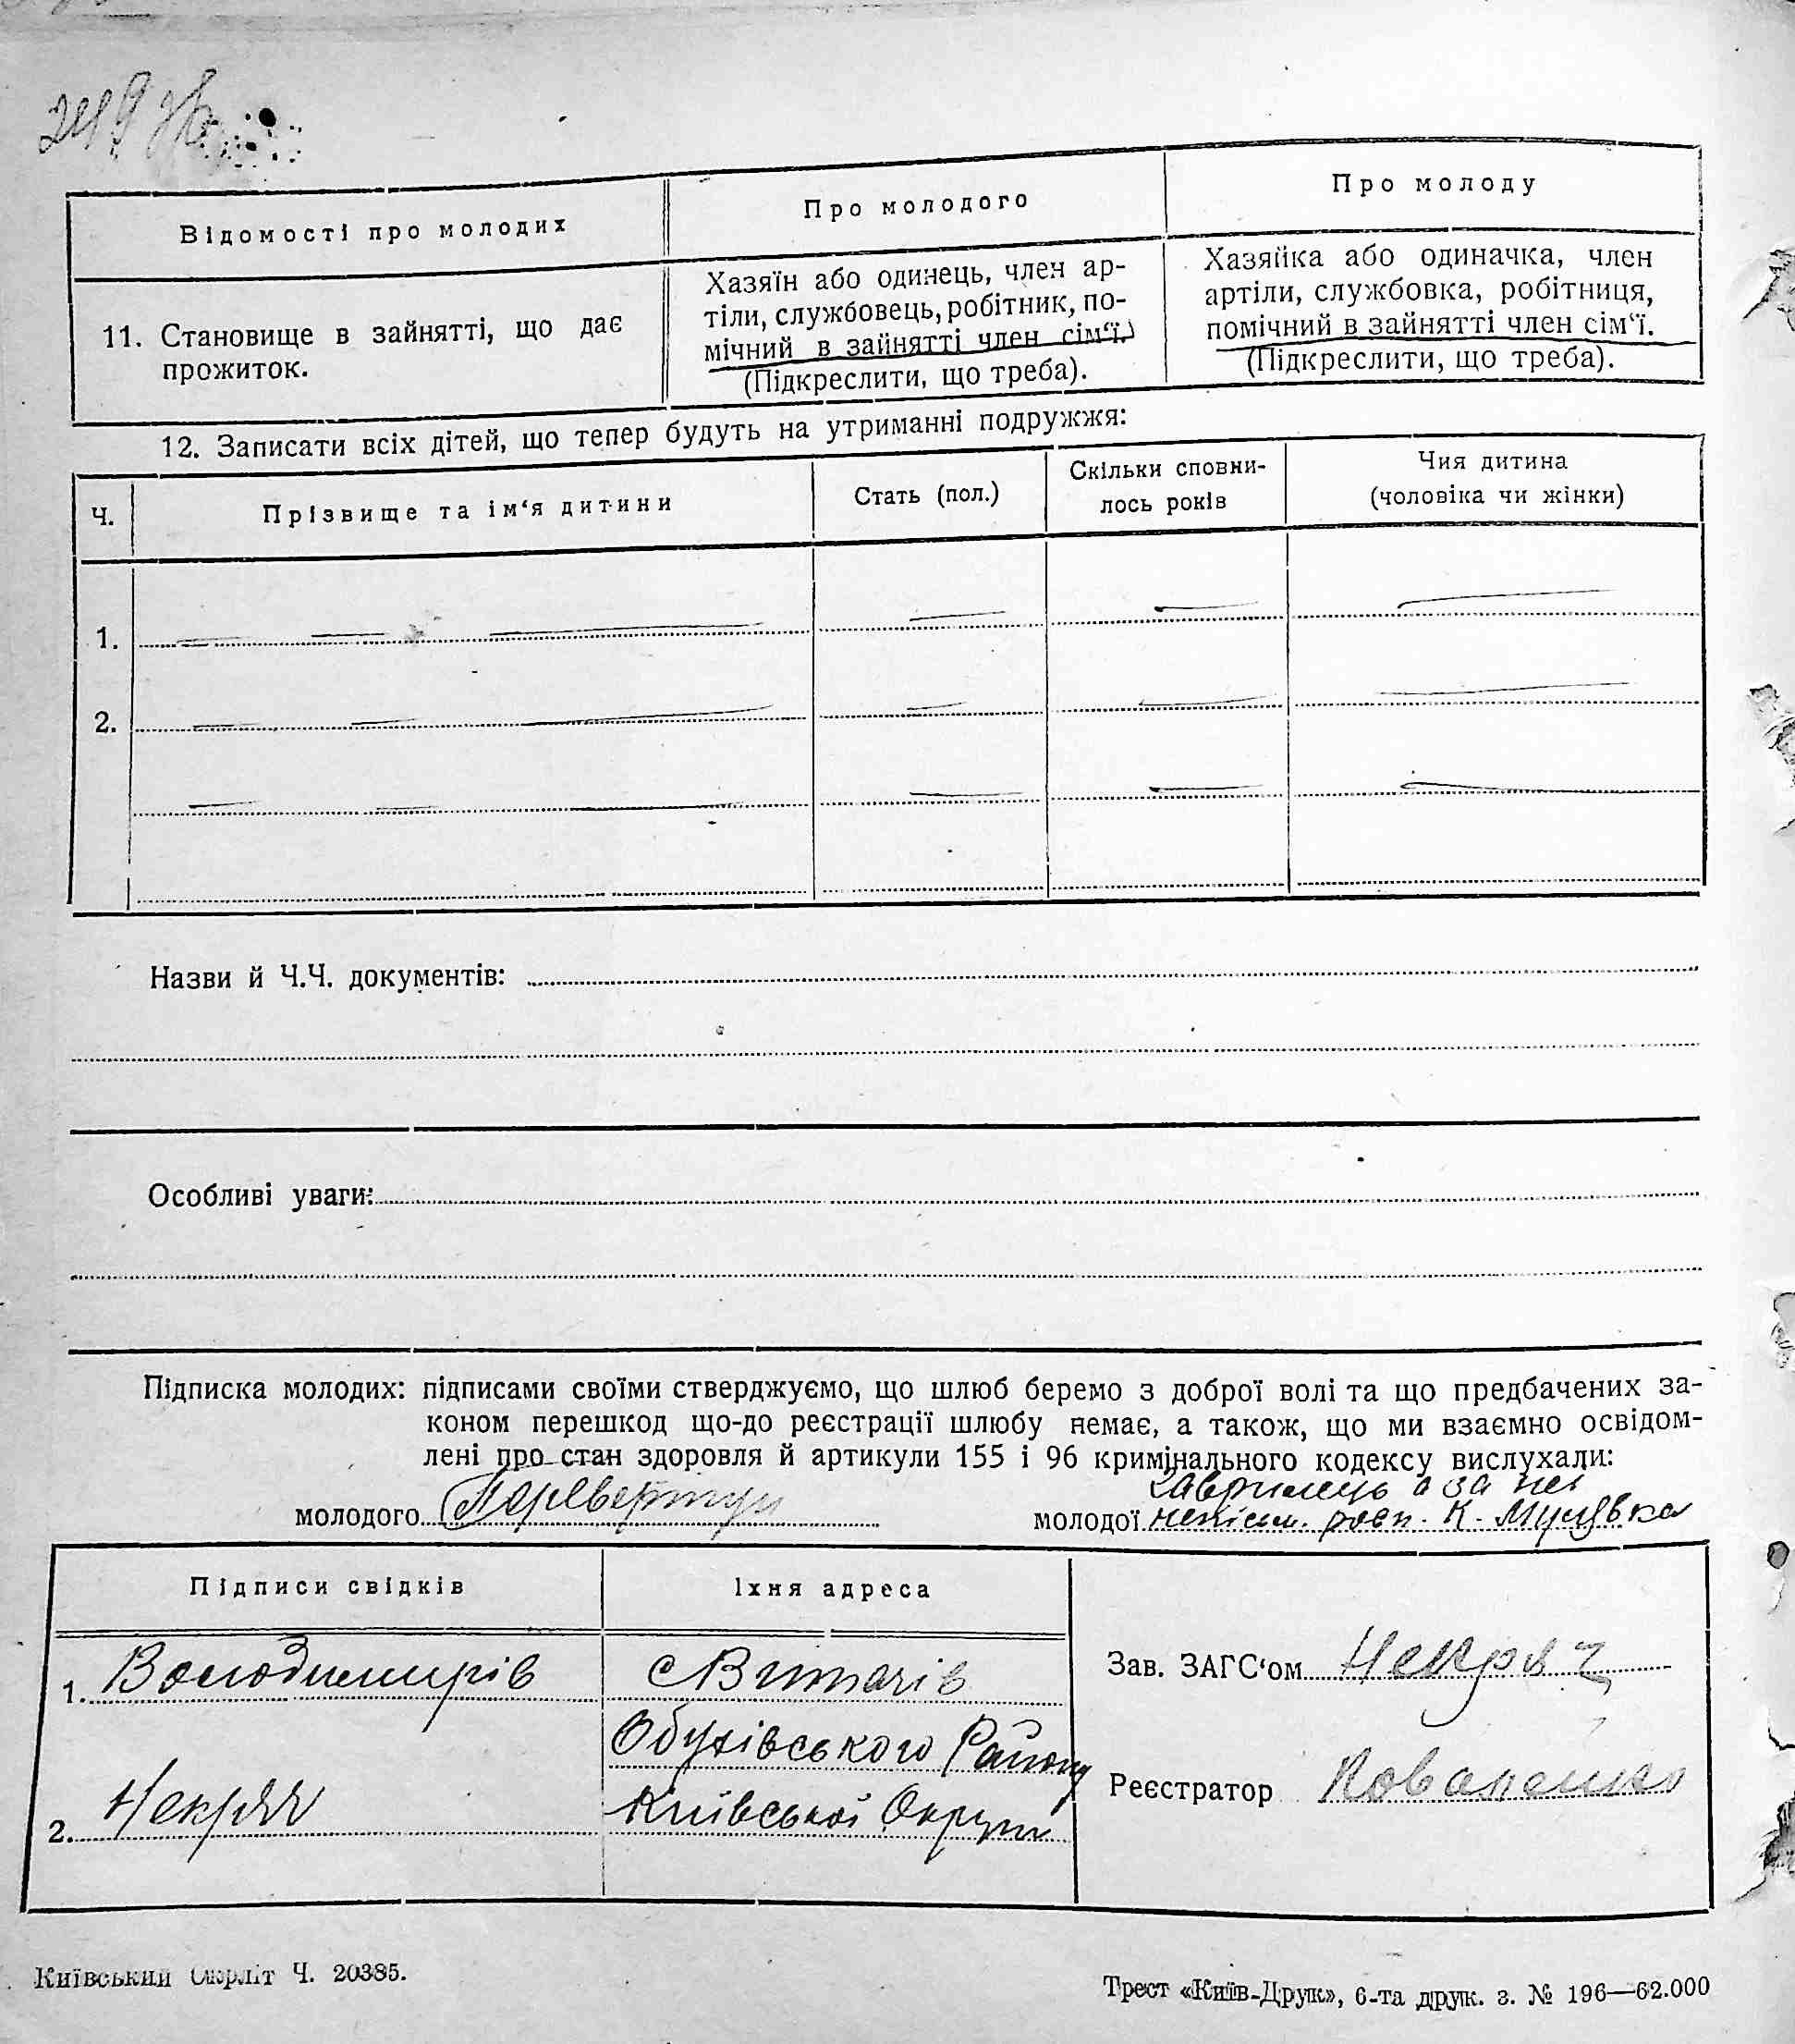 249 зв.
Відомості про молодих
Про молодого
Про молоду
11. Становище в зайнятті, що дає
прожиток.
Хазяїн або одинець, член ар-
тіли, службовець, робітник, по-
мічний в зайнятті член сім‘ї.
(Підкреслити, що треба).
Хазяйка або одиначка, член
артіли, службовка, робітниця,
помічний в зайнятті член сім‘ї.
(Підкреслити, що треба).
12. Записати всіх дітей, що тепер будуть на утриманні подружжя:
Ч.
Прізвище та ім‘я дитини
Стать (пол.)
Скільки сповни-
лось років
Чия дитина
(чоловіка чи жінки)
1.
2.
Назви й Ч.Ч. документів:
Особливі уваги:
Підписка молодих: підписами своїми стверджуємо, що шлюб беремо з доброї волі та що предбачених за-
коном перешкод що-до реєстрації шлюбу немає, а також, що ми взаємно освідом-
лені про стан здоровля й артикули 155 і 96 кримінального кодексу вислухали:
молодого Перевертун
а за неї
молодої непісьм. розп. К.
Підписи свідків
Їхня адреса
1. Володимирів
с Витачів
Обухівського Району
2. Некряч
Київської Округи
Зав. ЗАГС‘ом Некряч
Реєстратор Коваленко
Київський Окрліт Ч. 20385.
Трест «Київ-Друк», 6-та друк. з. № 196—62.000